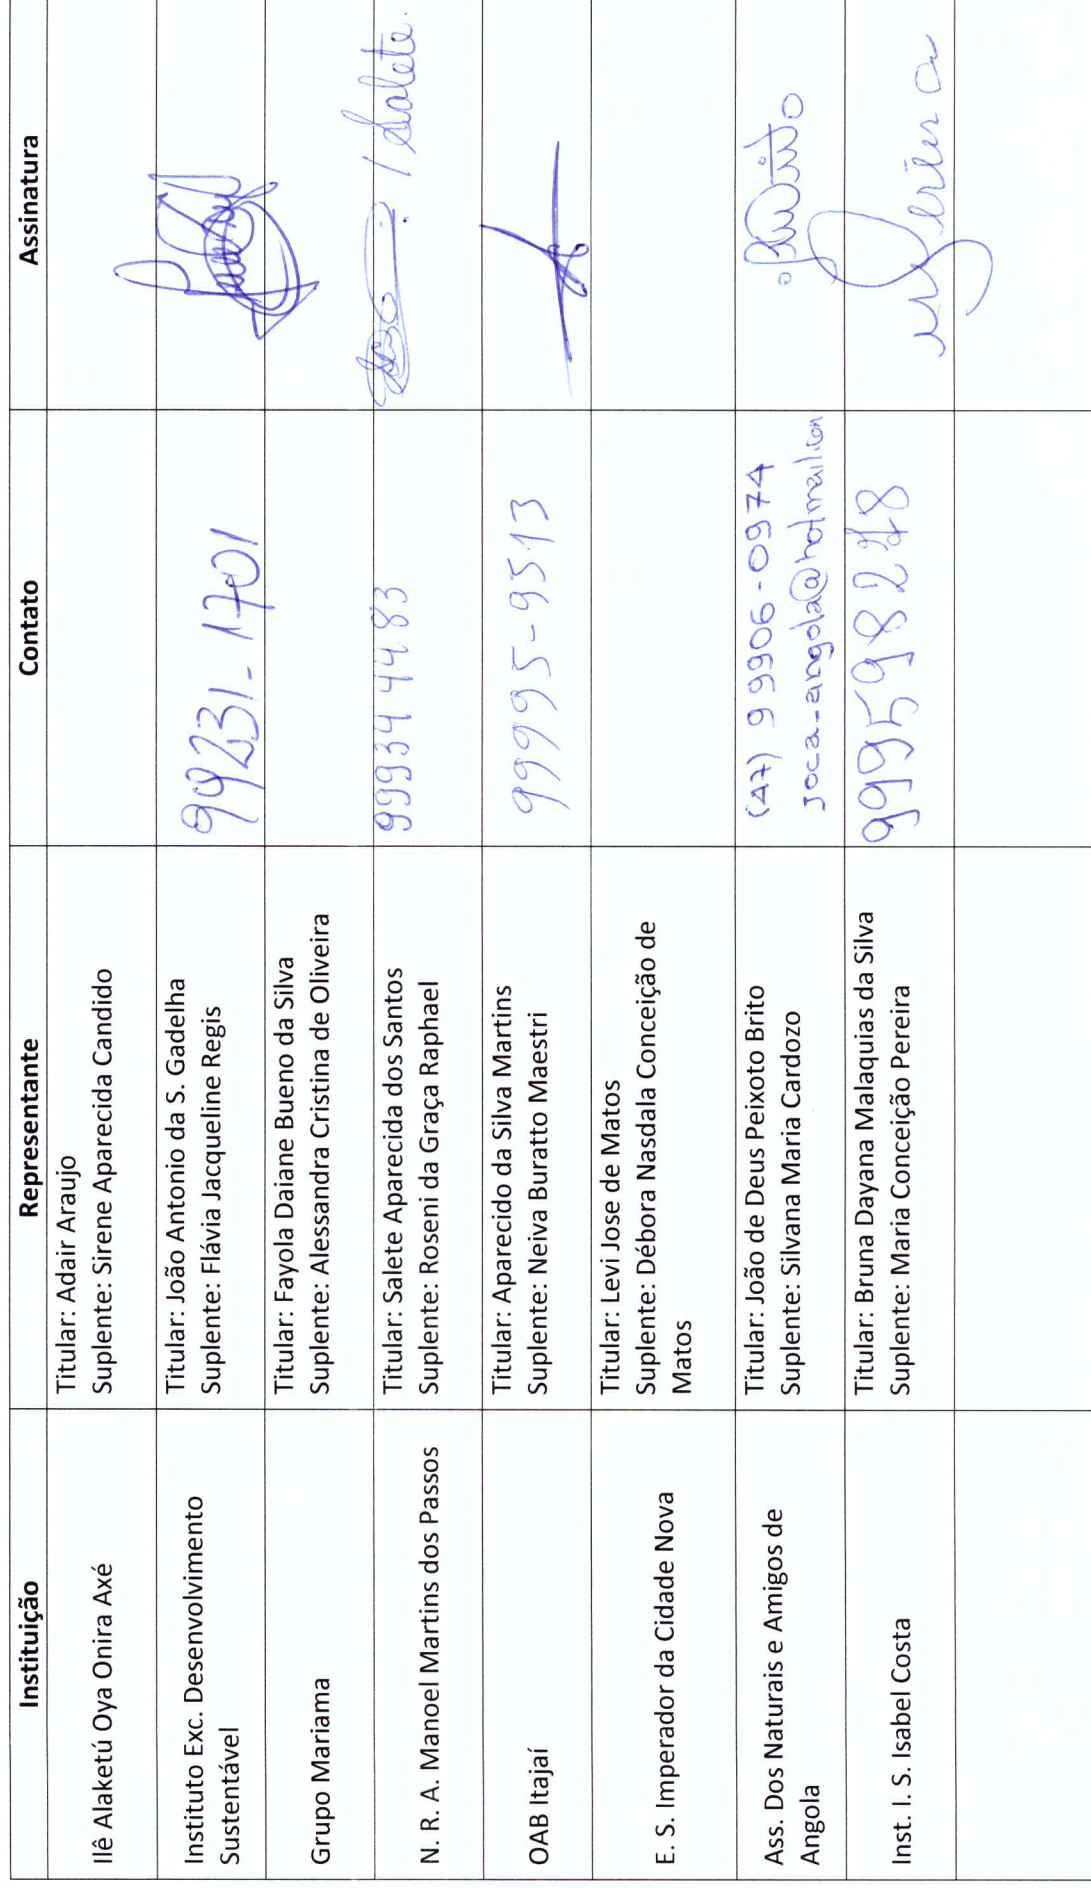 Instituição Representante Contato Assinatura
Ilê Alaketú Oya Onira Axé
Titular: Adair Araujo
Suplente: Sirene Aparecida Candido
Instituto Exc. Desenvolvimento
Sustentável
Titular: João Antonio da S. Gadelha
Suplente: Flávia Jacqueline Regis
99231-1701
Grupo Mariama
Titular: Fayola Daiane Bueno da Silva
Suplente: Alessandra Cristina de Oliveira
N. R. A. Manoel Martins dos Passos
Titular: Salete Aparecida dos Santos
Suplente: Roseni da Graça Raphael
999344483
/ Salete.
OAB Itajaí
Titular: Aparecido da Silva Martins
Suplente: Neiva Buratto Maestri
99995-9513
E. S. Imperador da Cidade Nova
Titular: Levi Jose de Matos
Suplente: Débora Nasdala Conceição de
Matos
Ass. Dos Naturais e Amigos de
Angola
Titular: João de Deus Peixoto Brito
Suplente: Silvana Maria Cardozo
(47) 99906-0974
joca-angola@hotmail.com
Inst. I. S. Isabel Costa
Titular: Bruna Dayana Malaquias da Silva
Suplente: Maria Conceição Pereira
999598278